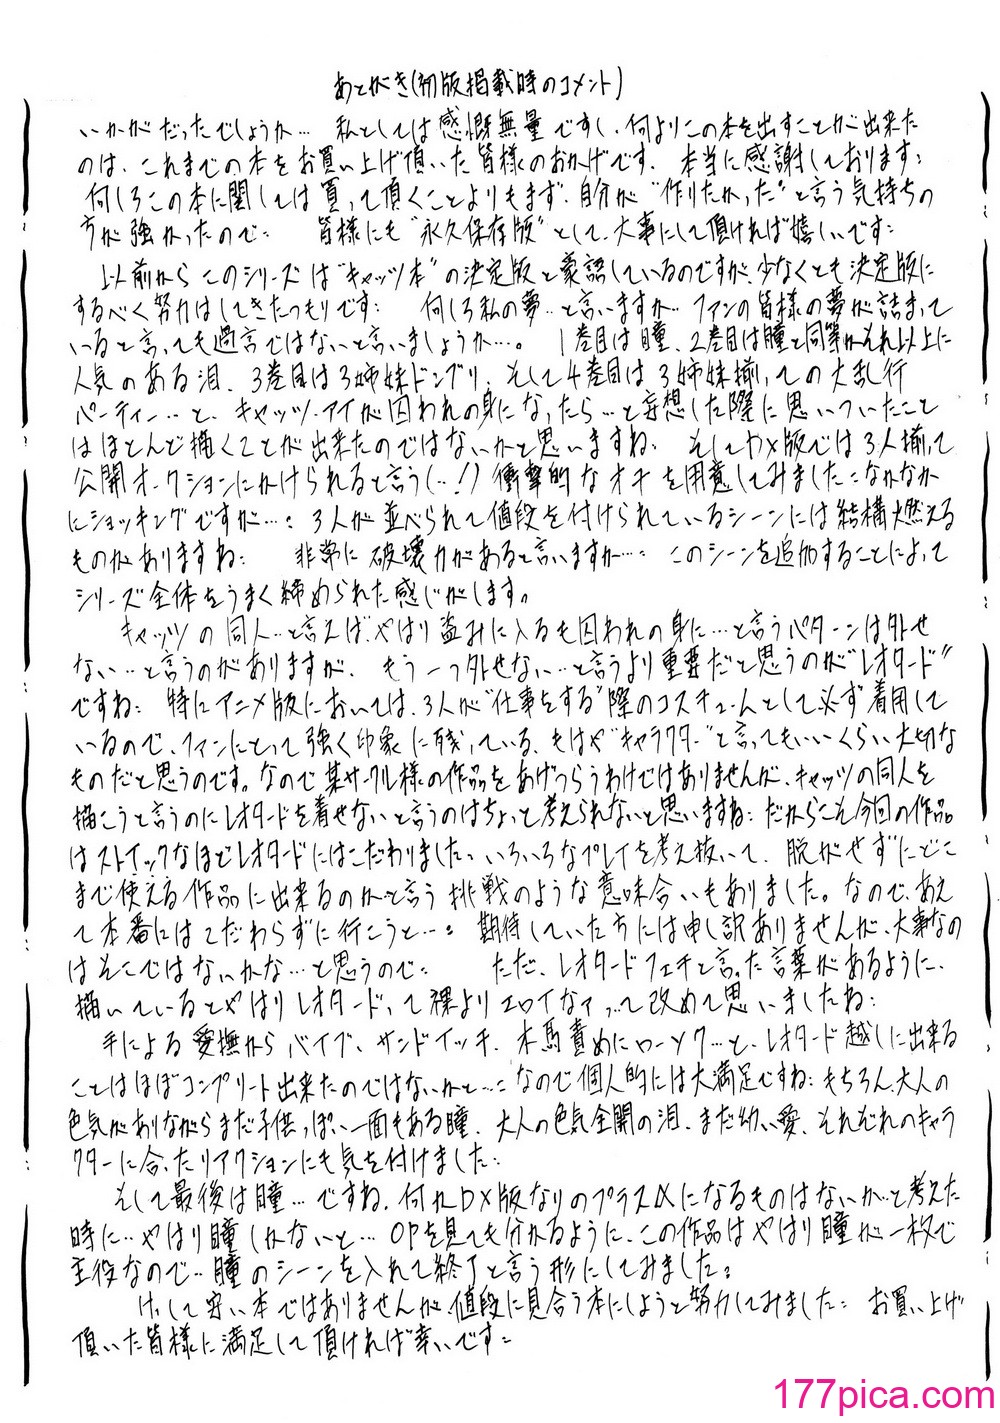 あとがき(初版掲載時のコメント)
いかがだったでしょうか… 私としては感慨無量ですし、何よりこの本を出すことが出来た
のは、これまでの本をお買い上げ頂いた皆様のおかげです. 本当に感謝しております:
何しろこの本に関しては買って頂くことよりもまず、自分が“作りたかった”と言う気持ちの
方が強かったので: 皆様にも“永久保存版”として、大事にして頂ければ嬉しいです:
以前からこのシリーズは“キャッツ本”の決定版と豪語しているのですが、少なくとも決定版に
するべく努力はしてきたつもりです: 何しろ私の夢…と言いますか… ファンの皆様の夢が詰まって
いると言っても過言ではないと言いましょうか…。 1巻目は瞳、2巻目は瞳と同等かそれ以上に
人気のある泪、3巻目は3姉妹ドンブリ、そして4巻目は3姉妹揃っての大乱行
パーティー…と、キャッツ・アイが囚われの身になったら…と妄想した際に思いついたこと
はほとんど描くことが出来たのではないかと思いますね: そしてDX版では3人揃って
公開オークションにかけられると言う(…!)衝撃的なオチを用意してみました:なかなか
にショッキングですが…: 3人が並べられて値段を付けられているシーンには結構燃える
ものがありますね: 非常に破壊力があると言いますか…: このシーンを追加することによって
シリーズ全体をうまく締められた感じがします。
キャッツの同人…と言えば、やはり盗みに入るも囚われの身に…と言うパターンは外せ
ない…と言うのがありますが、もう一つ外せない…と言うより重要だと思うのが“レオタード”
ですね: 特にアニメ版においては、3人が“仕事をする”際のコスチュームとして必ず着用して
いるので、ファンにとって強く印象に残っている、もはや“キャラクター”と言ってもいいくらい大切な
ものだと思うのです。なので某サークル様の作品をあげつらうわけではありませんが、キャッツの同人を
描こうと言うのにレオタードを着せないと言うのはちょっと考えられないと思いますね:だからこそ今回の作品
はストイックなほどレオタードにはこだわりました、いろいろなプレイを考え抜いて、脱がせずにどこ
まで使える作品に出来るのか…と言う挑戦のような意味合いもありました。なので、あえ
て本番にはこだわらずに行こうと…: 期待していた方には申し訳ありませんが、大事なの
はそこではないかな…と思うので: ただ、レオタードフェチと言った言葉があるように、
描いているとやはりレオタードって裸よりエロイなァ…って改めて思いましたね:
手による愛撫からバイブ、サンドイッチ、木馬責めにローソク…と、レオタード越しに出来る
ことはほぼコンプリート出来たのではないかと…:なので個人的には大満足ですね:もちろん、大人の
色気がありながらまだ子供っぽい一面もある瞳、大人の色気全開の泪、まだ幼い愛、それぞれのキャラ
クターに合ったリアクションにも気を付けました:
そして最後は瞳…ですね、何かDX版なりのプラスαになるものはないか…と考えた
時に…やはり瞳しかないと… OPを見ても分かるように、この作品はやはり瞳が一枚で
主役なので…瞳のシーンを入れて終了と言う形にしてみました:
けっして安い本ではありませんが値段に見合う本にしようと努力してみました: お買い上げ
頂いた皆様に満足して頂ければ幸いです:
177pica.com